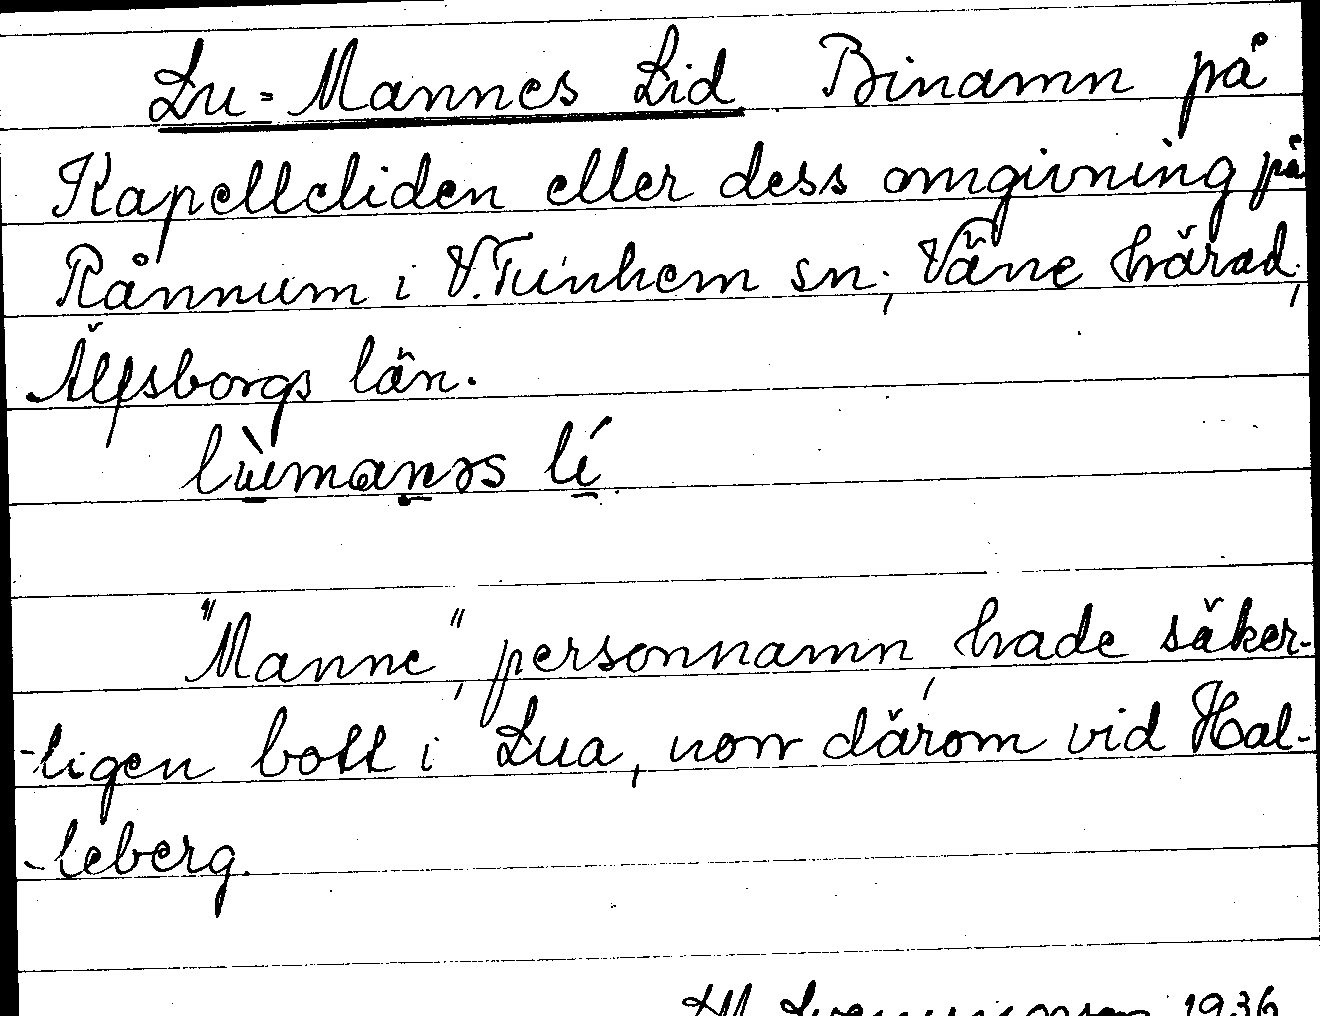 Lu-Mannes Lid Binamn på
Kapelleliden eller dess omgivning på
Rånnum i V.Tunhem sn; Väne härad,
Älfsborgs län.
lùmanəs lí
"Manne", personnamn, hade säker-
-ligen bott i Lua, norr därom vid Hal-
-leberg.
1936